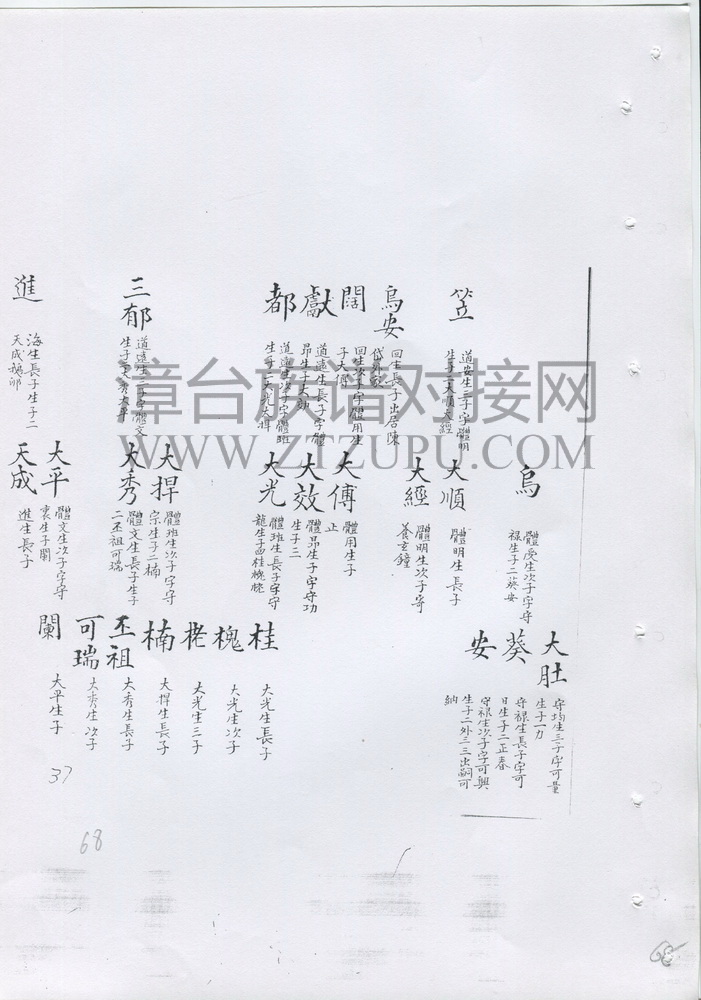 笠
道安生三子字體明
生子二大順大經
烏安
回生長子出居陳
闊
回生次子字體用生
子大傅
獻
道遠生長子字體
昂生子大効
都
道遠生次子字體班
生子二大光大捍
三郁
道遠生三子字體文
生子二大秀大平
進
海生長子生子二
天成
烏
體受生次子字守
祿生子二葵安
大順
體明生長子
大經
體明生次子寄
養玄鐘
大傅
體用生子
止
大效
體昂生子字守功
生子三
大光
體班生長子字守
龍生子四桂槐栳
大捍
體班生次子字守
宗生子二楠
大秀
體文生長子生子
二丕祖可瑞
大平
體文生次子字守
衷生子闌
天成
進生長子
大肚
守均生三子字可量
生子一力
葵
守祿生長子字可
日生子二正春
安
守祿生次子字可興
生子二外三三出嗣可
納
桂
大光生長子
槐
大光生次子
栳
大光生三子
楠
大捍生長子
丕祖
大秀生長子
可瑞
大秀生次子
闌
大平生子
37
68
68
章台族谱对接网
WWW.ZTZUPU.COM